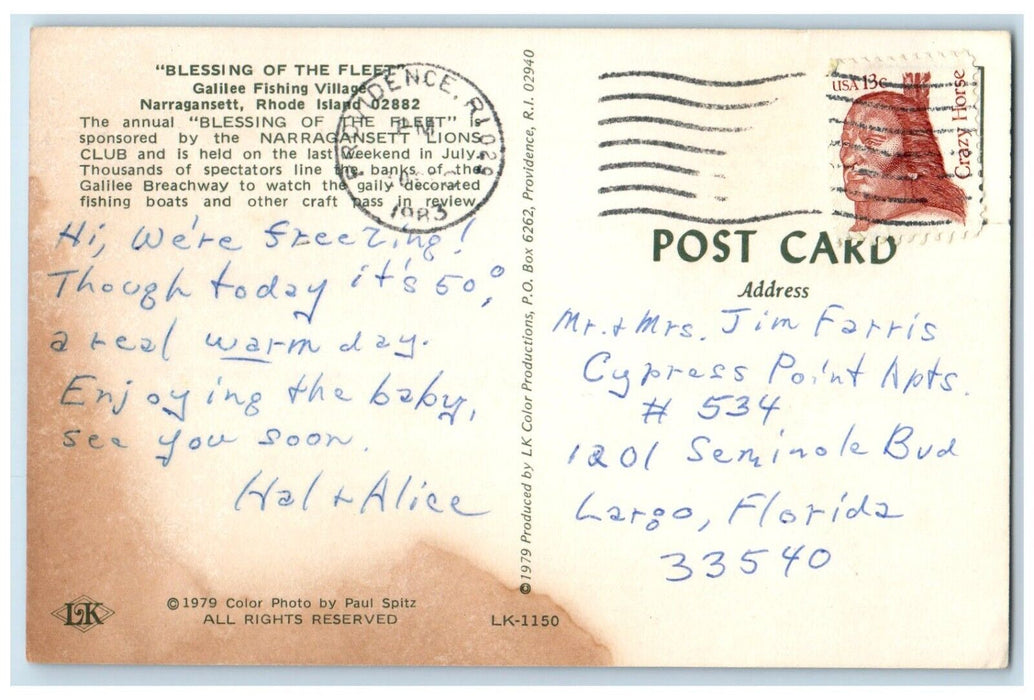 "BLESSING OF THE FLEET"
Galilee Fishing Village
Narragansett, Rhode Island 02882
The annual "BLESSING OF THE FLEET"
sponsored by the NARRAGANSETT LIONS
CLUB and is held on the last weekend in July.
Thousands of spectators line the banks of the
Galilee Breachway to watch the gaily decorated
fishing boats and other craft pass in review.
Hi, We're freezing!
Though today it's 50°,
a real warm day.
Enjoying the baby,
see you soon.
Hal + Alice
LK
©1979 Color Photo by Paul Spitz
ALL RIGHTS RESERVED
LK-1150
PROVIDENCE, R.I. 029
PM
1983
©1979 Produced by LK Color Productions, P.O. Box 6262, Providence, R.I. 02940
USA 13c
Crazy Horse
POST CARD
Address
Mr. + Mrs. Jim Farris
Cypress Point Apts.
# 534
1201 Seminole Bvd
Largo, Florida
33540